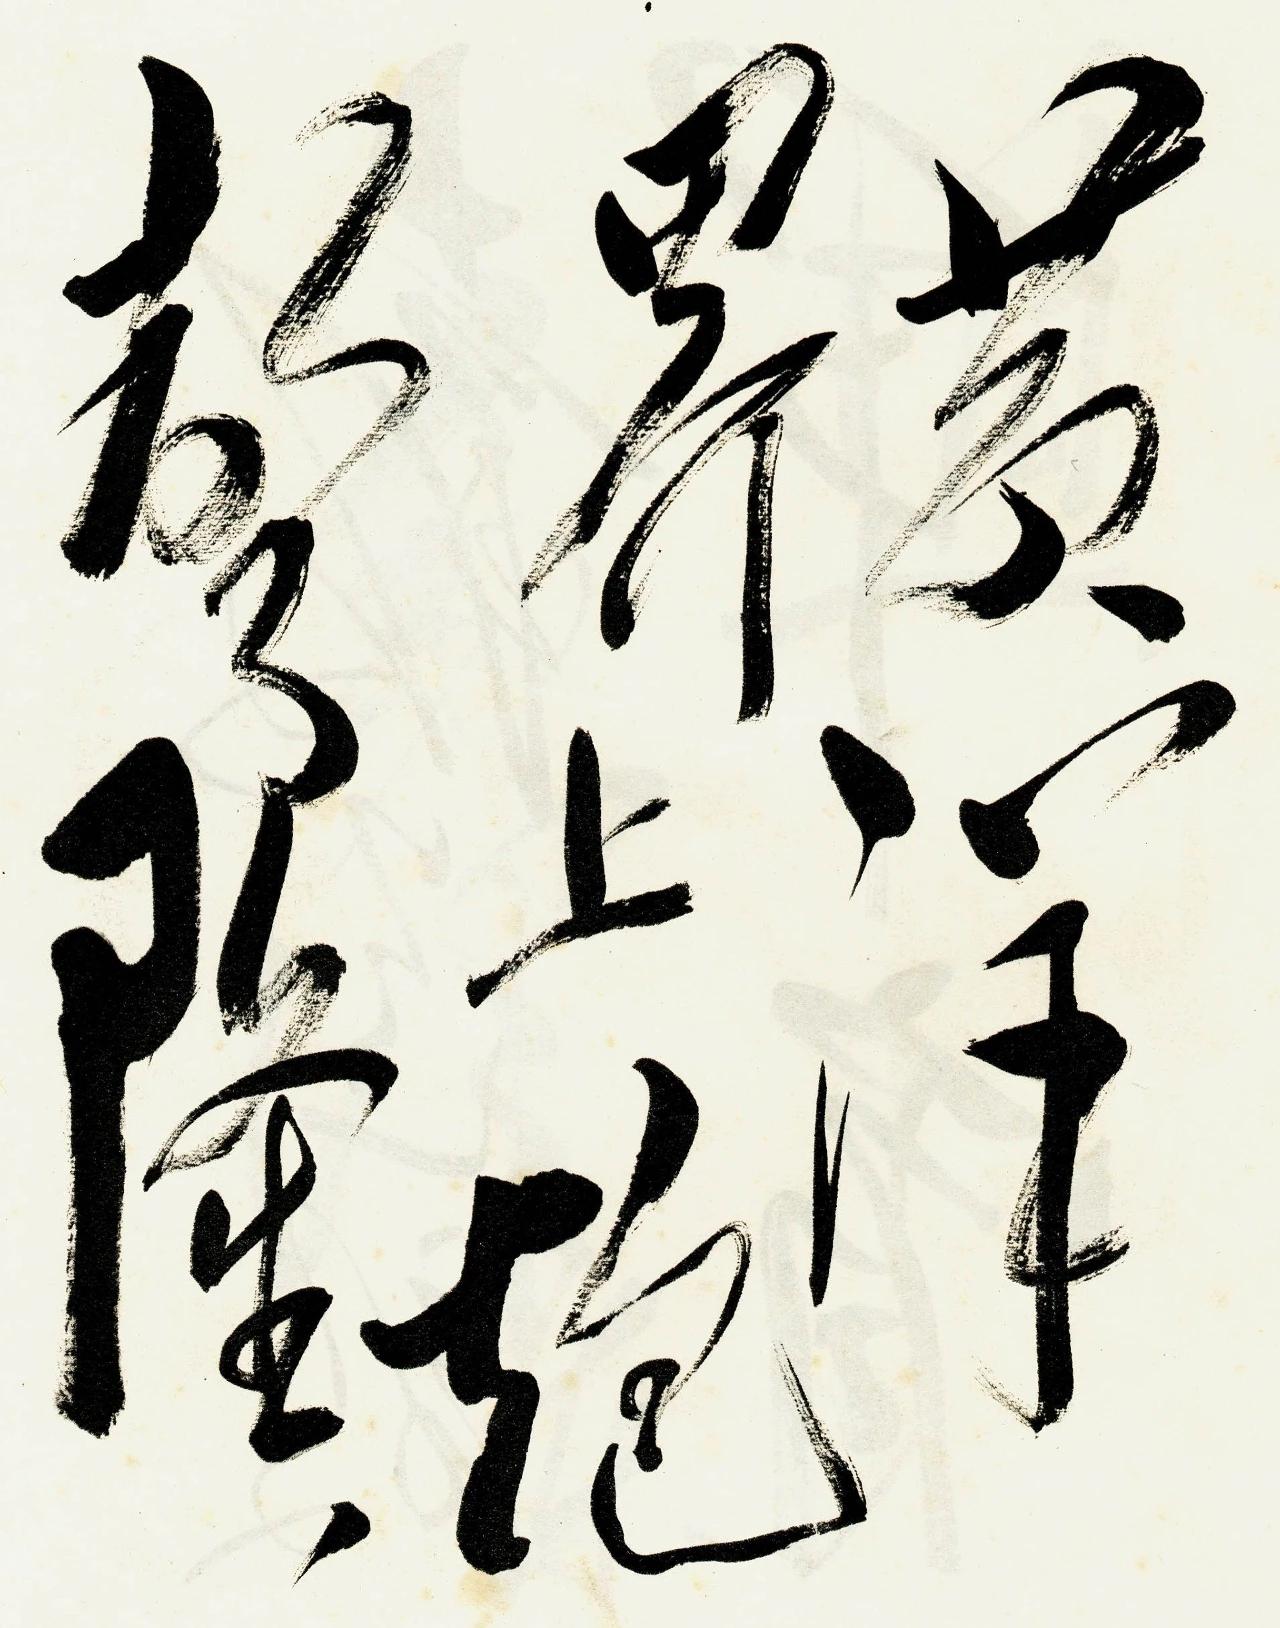 黄洋
界上炮
聲隆，